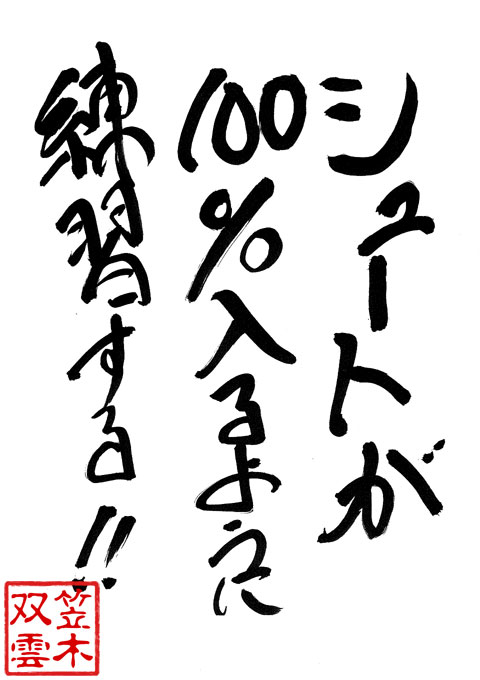 シュートが
100%入るように
練習する!!
笠木
双雲